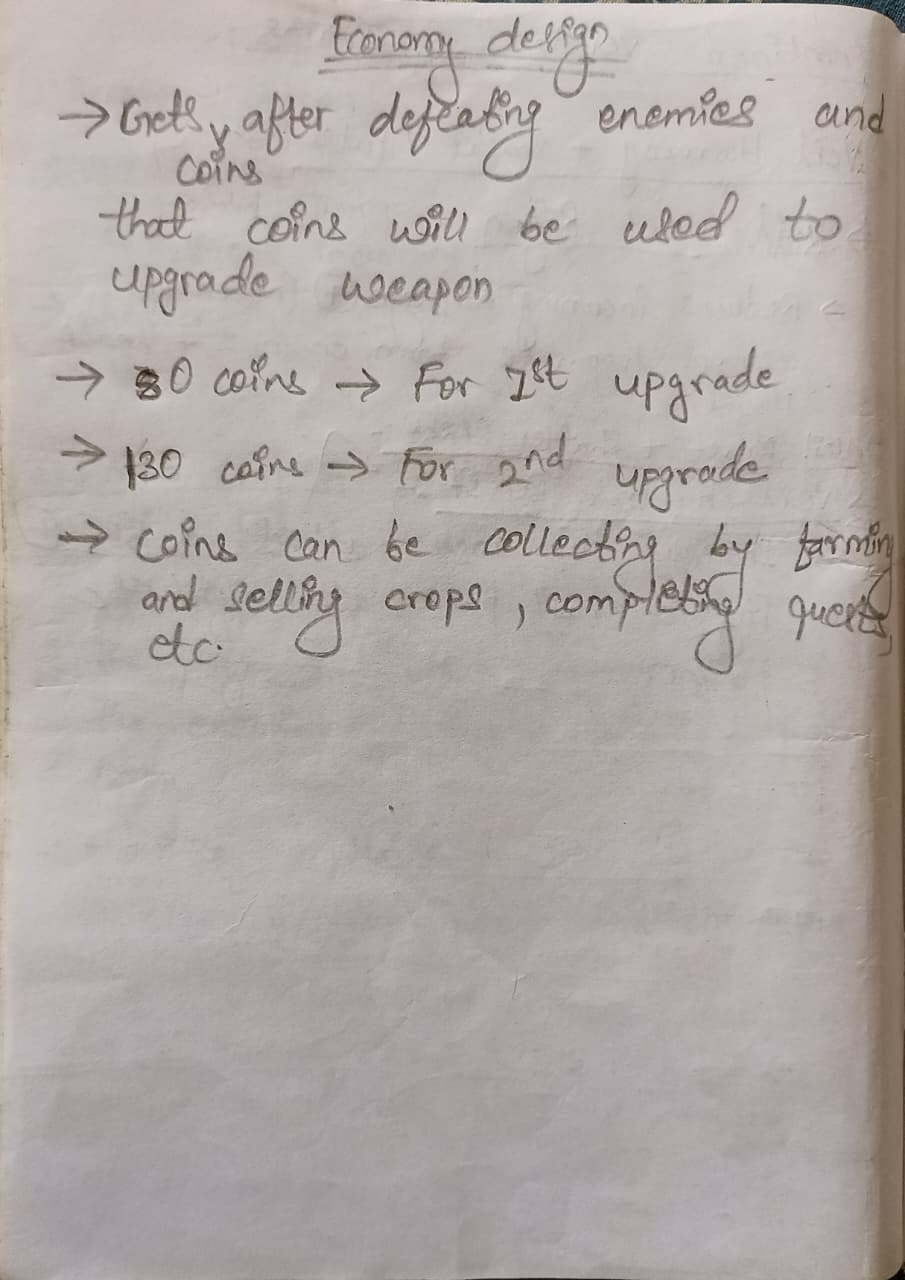 Economy design
→ Gets coins after defeating enemies and
that coins will be used to
upgrade weapon
→ 80 coins → For 1st upgrade
→ 130 coins → For 2nd upgrade
→ coins can be collecting by farming
and selling crops, completing quests,
etc.